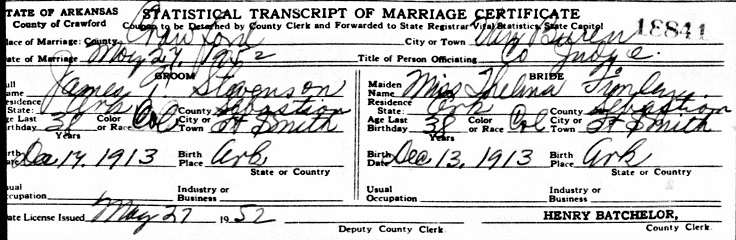 STATE OF ARKANSAS STATISTICAL TRANSCRIPT OF MARRIAGE CERTIFICATE
County of Crawford Coupon to be Detached by County Clerk and Forwarded to State Registrar Vital Statistics State Capitol
Place of Marriage: County Crawford City or Town Van Buren 18841
Date of Marriage May 27, 1952 Title of Person Officiating Co Judge
GROOM BRIDE
Full Name James T. Stevenson Maiden Name Miss Thelma
Residence State: Ark County Sebastian Residence State: Ark County Sebastian
Age Last Birthday 38 Years Color or Race Col City or Town Ft Smith Age Last Birthday 38 Years Color or Race Col City or Town Ft Smith
Birth Date Dec 14, 1913 Birth Place Ark Birth Date Dec 13, 1913 Birth Place Ark
State or Country State or Country
Usual Occupation Industry or Business Usual Occupation Industry or Business
Date License Issued May 27 1952 HENRY BATCHELOR,
Deputy County Clerk. County Clerk.